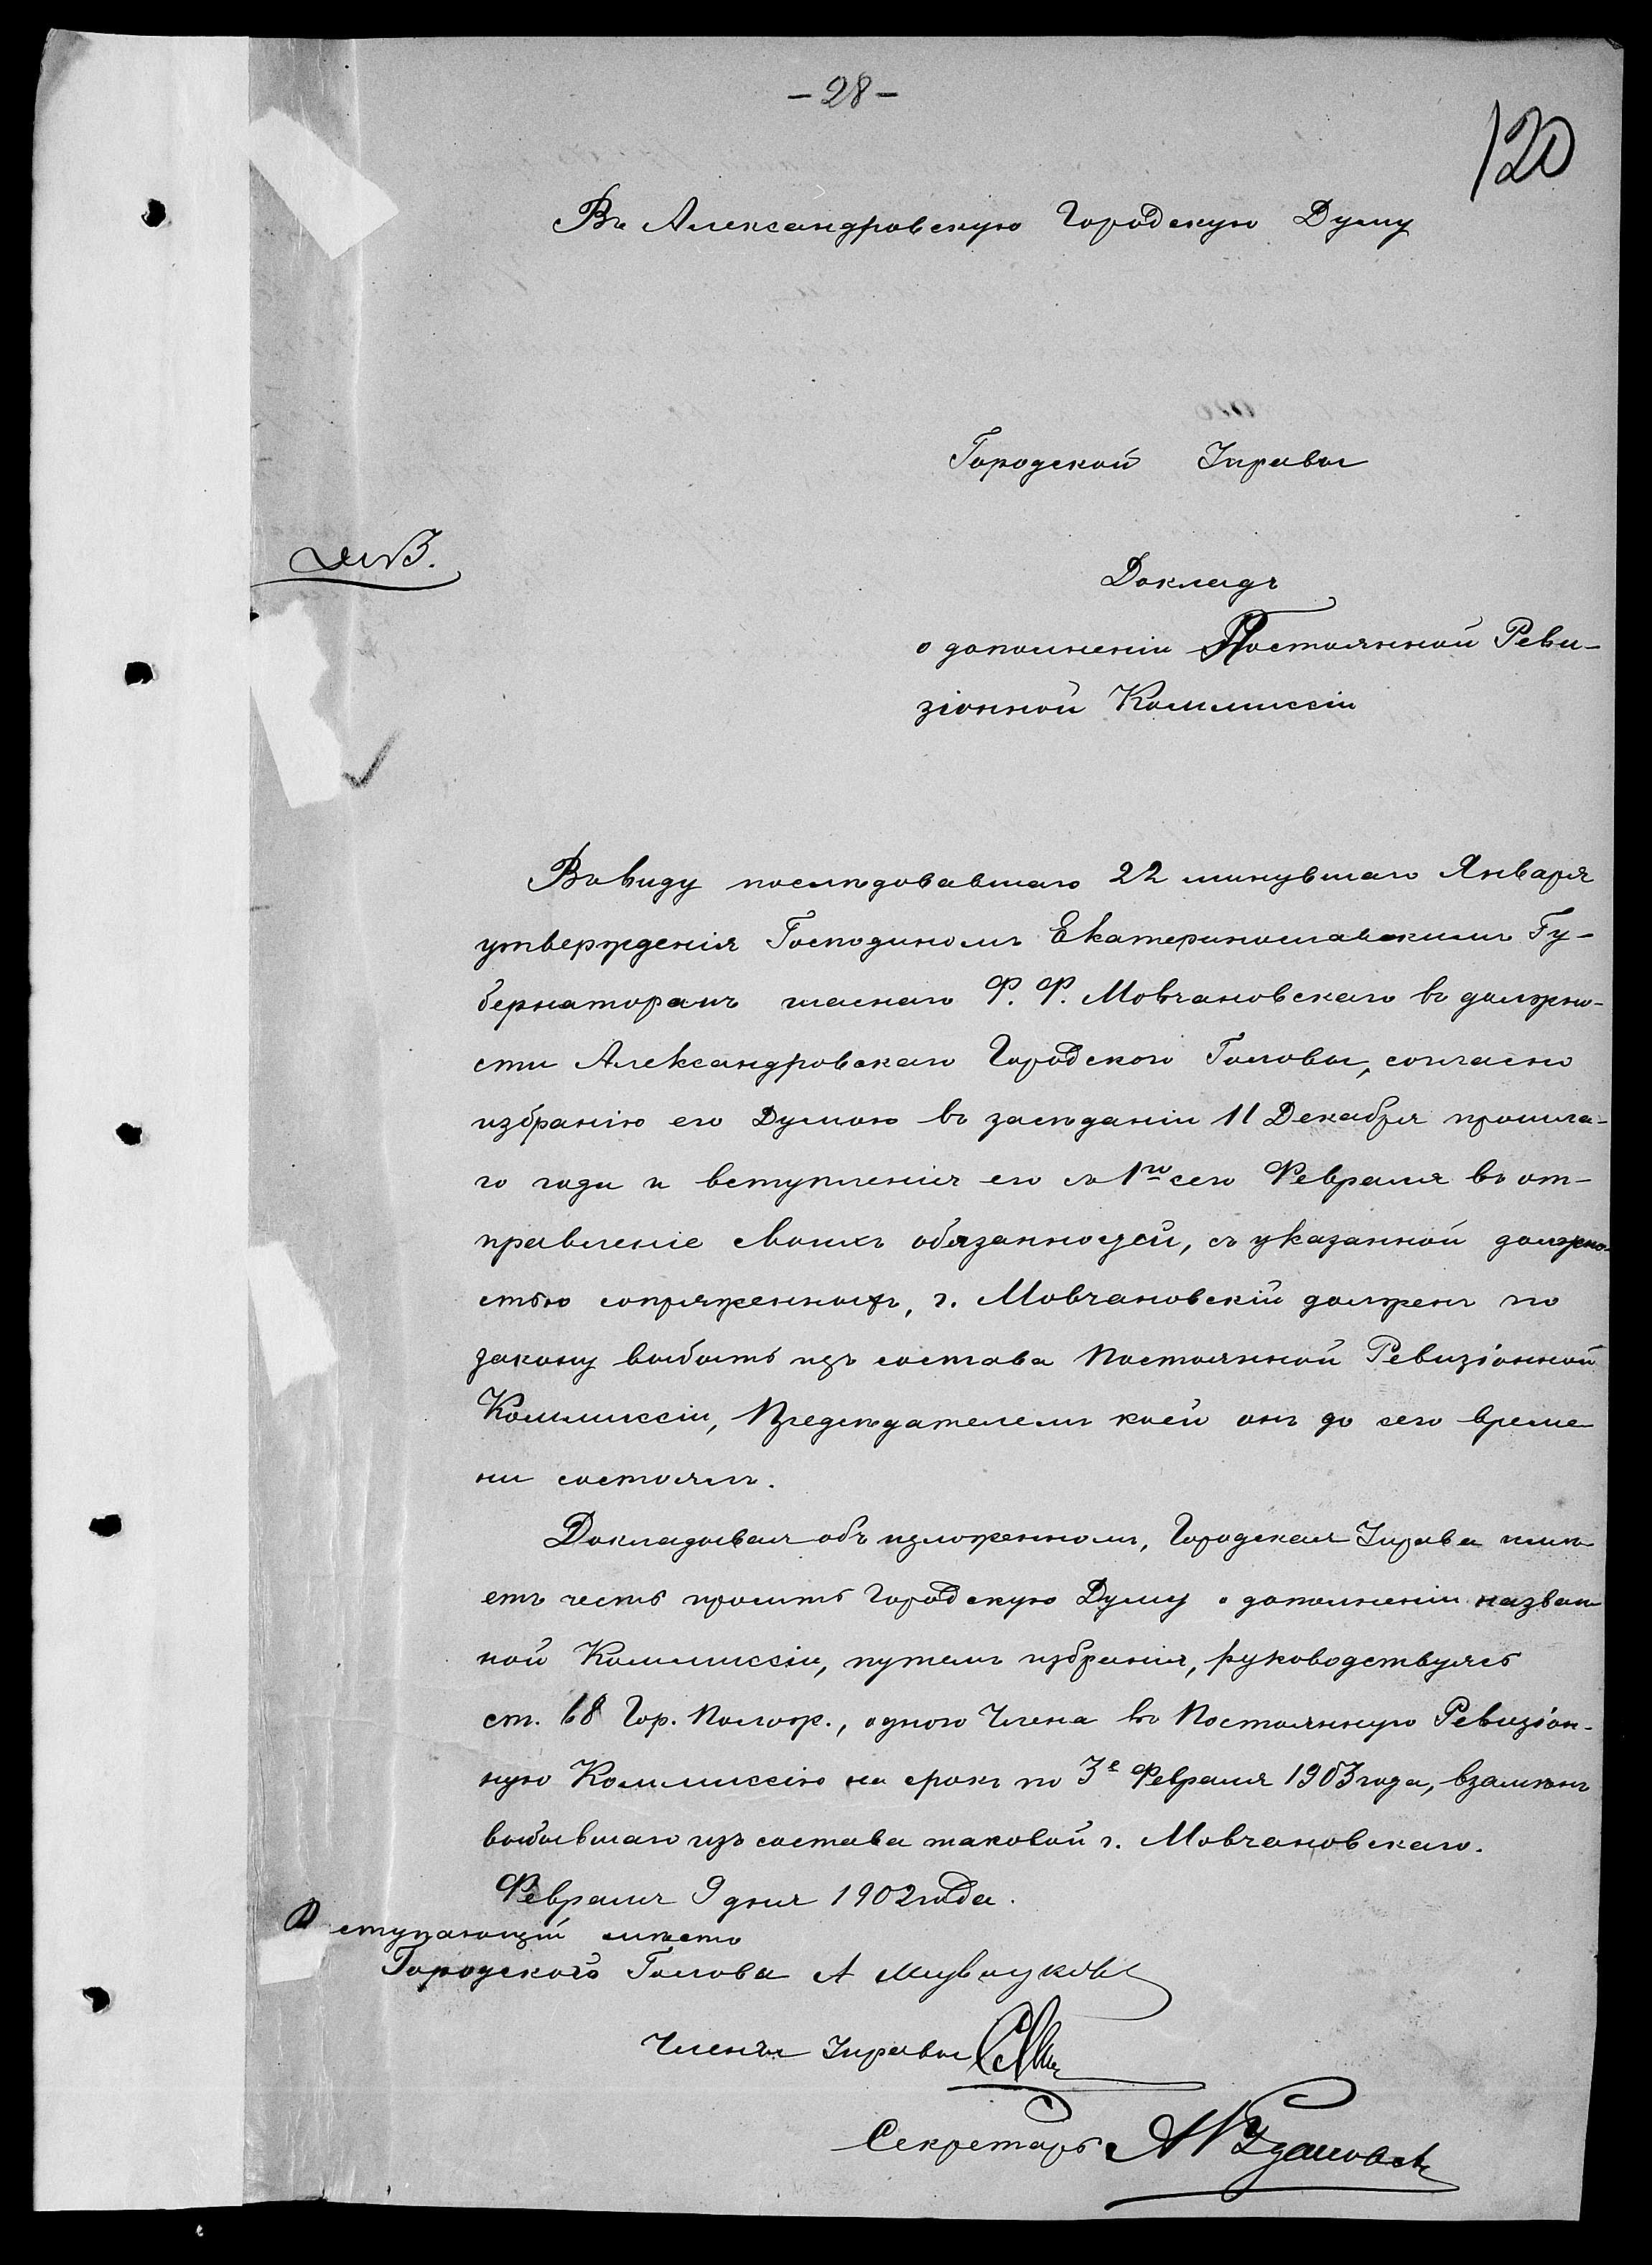 - 28 -
120
Въ Александровскую Городскую Думу
Городской Управы
Докладъ
о дополненіи Постоянной Реви-
зіонной Коммиссіи
Въ виду послѣдовавшаго 22 минувшаго Января
утвержденія Господиномъ Екатеринославскимъ Гу-
бернаторомъ гласнаго Ф. Ф. Мовчановскаго въ должно-
сти Александровскаго Городского Головы, согласно
избранію его Думою въ засѣданіи 11 Декабря прошла-
го года и вступленія его съ 1го сего Февраля въ от-
правленіе своихъ обязанностей, съ указанной должно-
стью сопряженныхъ, г. Мовчановскій долженъ по
закону выбыть изъ состава Постоянной Ревизіонной
Коммиссіи, Предсѣдателемъ коей онъ до сего време
ни состоялъ.
Докладывая объ изложенномъ, Городская Управа имѣ
етъ честь просить Городскую Думу о дополненіи назван
ной Коммиссіи, путемъ избранія, руководствуясь
ст. 68 Гор. Полож., одного Члена въ Постоянную Ревизіон-
ную Коммиссію на срокъ по 3е Февраля 1903 года, взамѣнъ
выбывшаго изъ состава таковой г. Мовчановскаго.
Февраля 9 дня 1902 года.
Заступающій мѣсто
Городского Головы А
Члены Управы
Секретарь